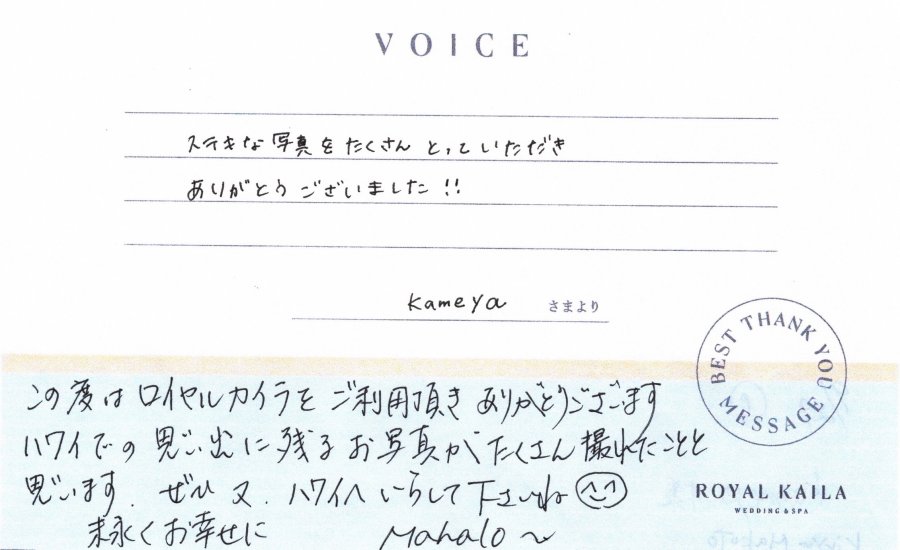 VOICE
ステキな写真をたくさん とっていただき
ありがとう ございました!!
Kameya さまより
BEST THANK YOU MESSAGE
この度は ロイヤルカイラを ご利用頂き ありがとうございます
ハワイでの 思い出に 残る お写真が たくさん 撮れたことと
思います. ぜひ 又. ハワイへ いらして 下さいね
末永く お幸せに Mahalo ~
ROYAL KAILA
WEDDING & SPA